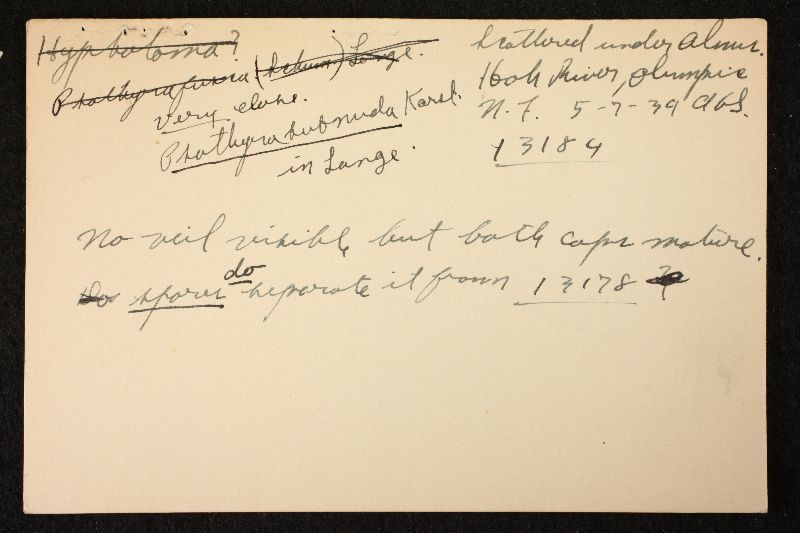 Hypholoma?
Psathyra fusca (Schum) Lange.
very close.
Psathyra subnuda Karst.
in Lange.
Scattered under Alnus.
Hoh River, Olympic
N.F. 5-7-39 AHS.
13184
No veil visible, but both caps mature.
Do spores do separate it from 13178 ?